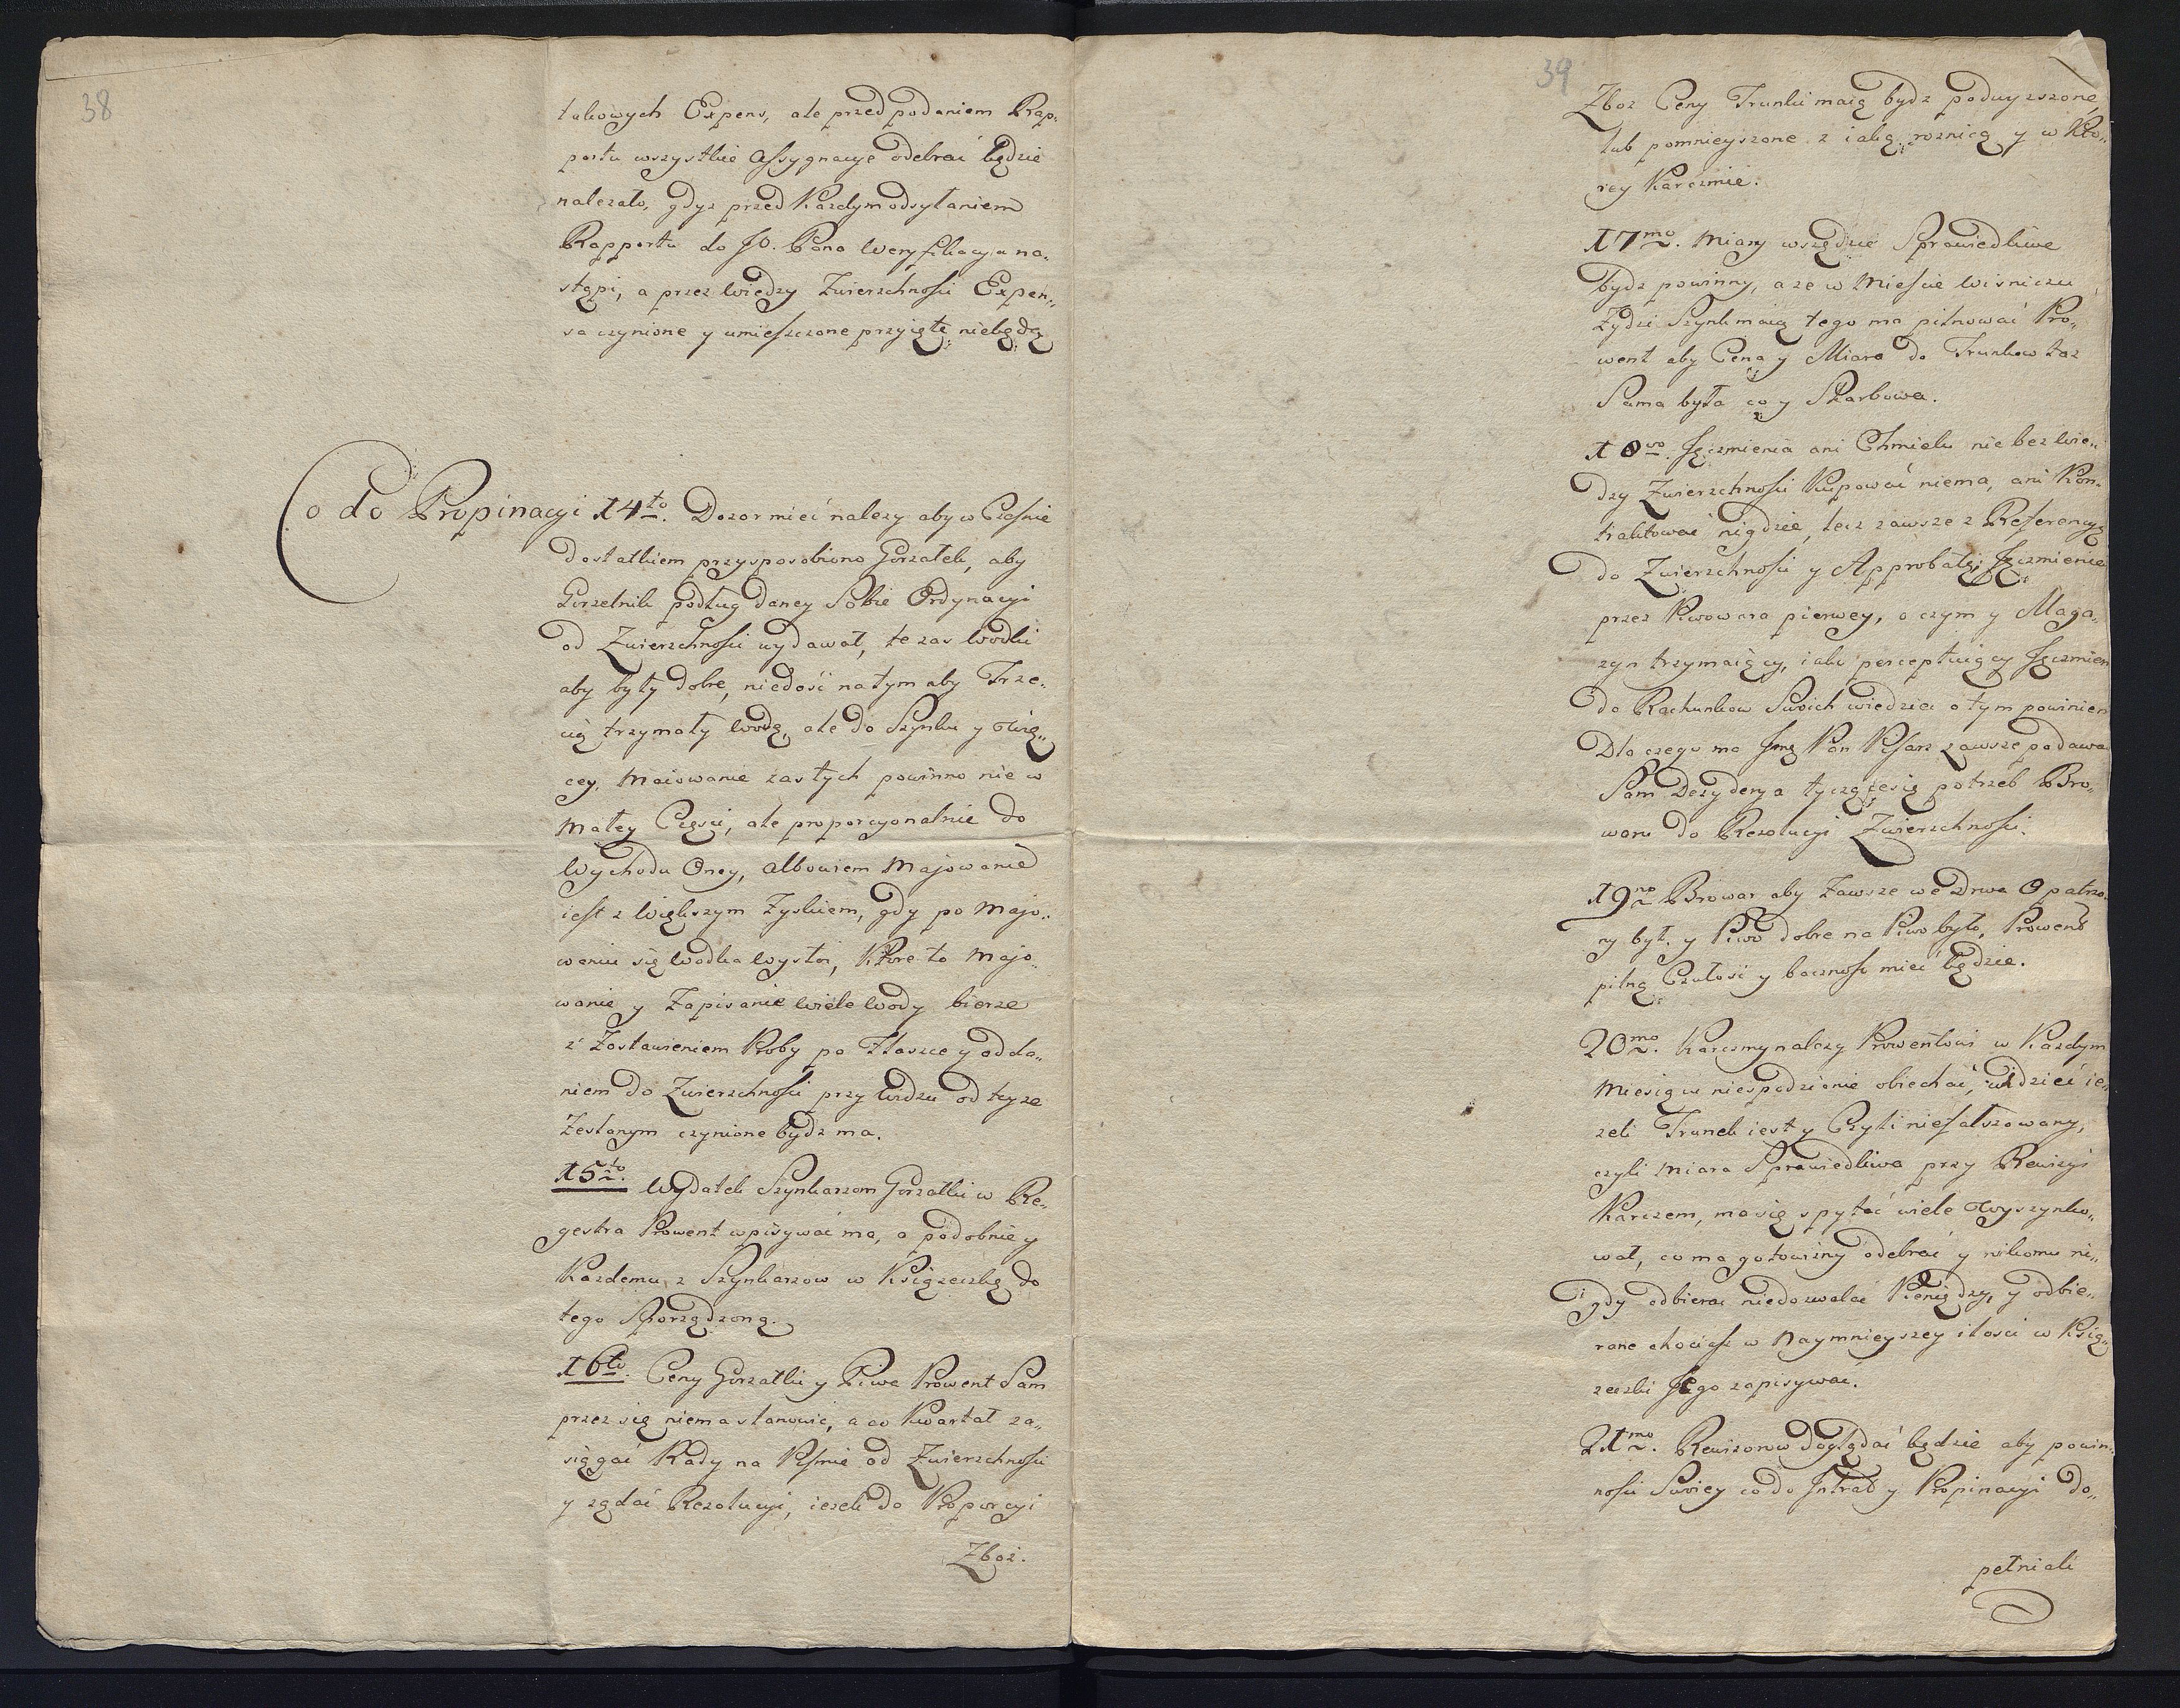 38
takowych Expens, ale przed podaniem Rap„
portu wszystkie Assygnacye odebrać będzie
nalezało, gdyz przed Kazdym odsyłaniem
Rapportu do JO. Pana Weryfikacya na„
stąpi, a przez wiedzy Zwierzchnosci Expen„
sa czynione y umieszczone przyięte niebędą
Co do Propinacyi 14to. Dozor mieć nalezy aby w Czasie
dostatkiem przysposobiono Gorzałek, aby
Gorzelnik podług daney Sobie Ordynacyi
od Zwierzchnosci wydawał, te zas Wodki
aby były dobre, niedość na tym aby Trze„
cią trzymały Wodę, ale do Szynku y Wię„
cey, Maiowanie zas tych powinno nie w
Małey Częsci, ale proporcyonalnie do
Wychodu Oney, albowiem Majowanie
iest z Większym Zyskiem, gdy po Majo„
waniu się Wodka Wystoi, Ktore to Majo„
wanie y Zapisanie wiele Wody bierze
z Zostawieniem Proby po Flaszce y odda„
niem do Zwierzchnosci przy Widzu od teyze
Zesłanym czynione bydz ma.
15to. Wydatek Szynkarzom Gorzałki w Re„
gestra Prowent wpisywać ma, a podobnie y
Kazdemu z Szynkarzow w Ksiązeczkę do
tego Sporządzoną.
16to. Ceny Gorzałki y Piwa Prowent Sam
przez się niema stanowić, a co Kwartał za„
sięgać Rady na Pismie od Zwierzchnosci
y ządać Rezolucyi, iezeli do Proporcyi
Zboz.
39
Zboz Ceny Trunku maią bydz podwyzszone,
lub pomnieyszone z iaką roznicą y w Kto„
rey Karczmie.
17mo. Miary wszędzie Sprawiedliwe
bydz powinny, a ze w Miescie Wisniczu
Zydzi Szynk maią tego ma pilnować Pro„
went aby Cena y Miara do Trunkow taz
Sama była co y Skarbowa.
18vo. Jęczmienia ani Chmielu nie bez Wie„
dzy Zwierzchnosci Kupować niema, ani Kon„
traktować nigdzie, lecz zawsze z Referencyą
do Zwierzchnosci y Approbatą Jęczmienia
przez Piwowara pierwey, o czym y Maga„
zyn trzymaiący, iako perceptuiący Jęczmien
do Rachunkow Swoich wiedzieć o tym powinien
Dla czego ma Jmć Pan Pisarz zawsze podawać
Sam Dezyderya tyczącesię potrzeb Bro„
waru do Rezolucyi Zwierzchnosci.
19no Browar aby Zawsze we Drwa Opatrzo„
ny był, y Piwo dobre na Piwo było, Prowent
pilną Czułość y bacznosc mieć będzie.
20mo. Karczmy nalezy Prowentowi w Kazdym
Miesiącu niespodzianie obiechać, widzieć ie„
zeli Trunek iest y Czyli niesfałszowany,
czyli Miara Sprawiedliwa przy Rewizyi
Karczem, ma się spytać wiele Wyszynko„
wał, co ma gotowizny odebrać y nikomu ni„
gdy odbierać niedozwalać Pieniędzy, y odbie„
rane chociasz w Naymnieyszey ilosci w Ksią„
zeczki Jego zapisywać.
21mo. Rewizorow doglądać będzie aby powin„
nosci Swoiey co do Intrat y Propinacyi do„
pełniali